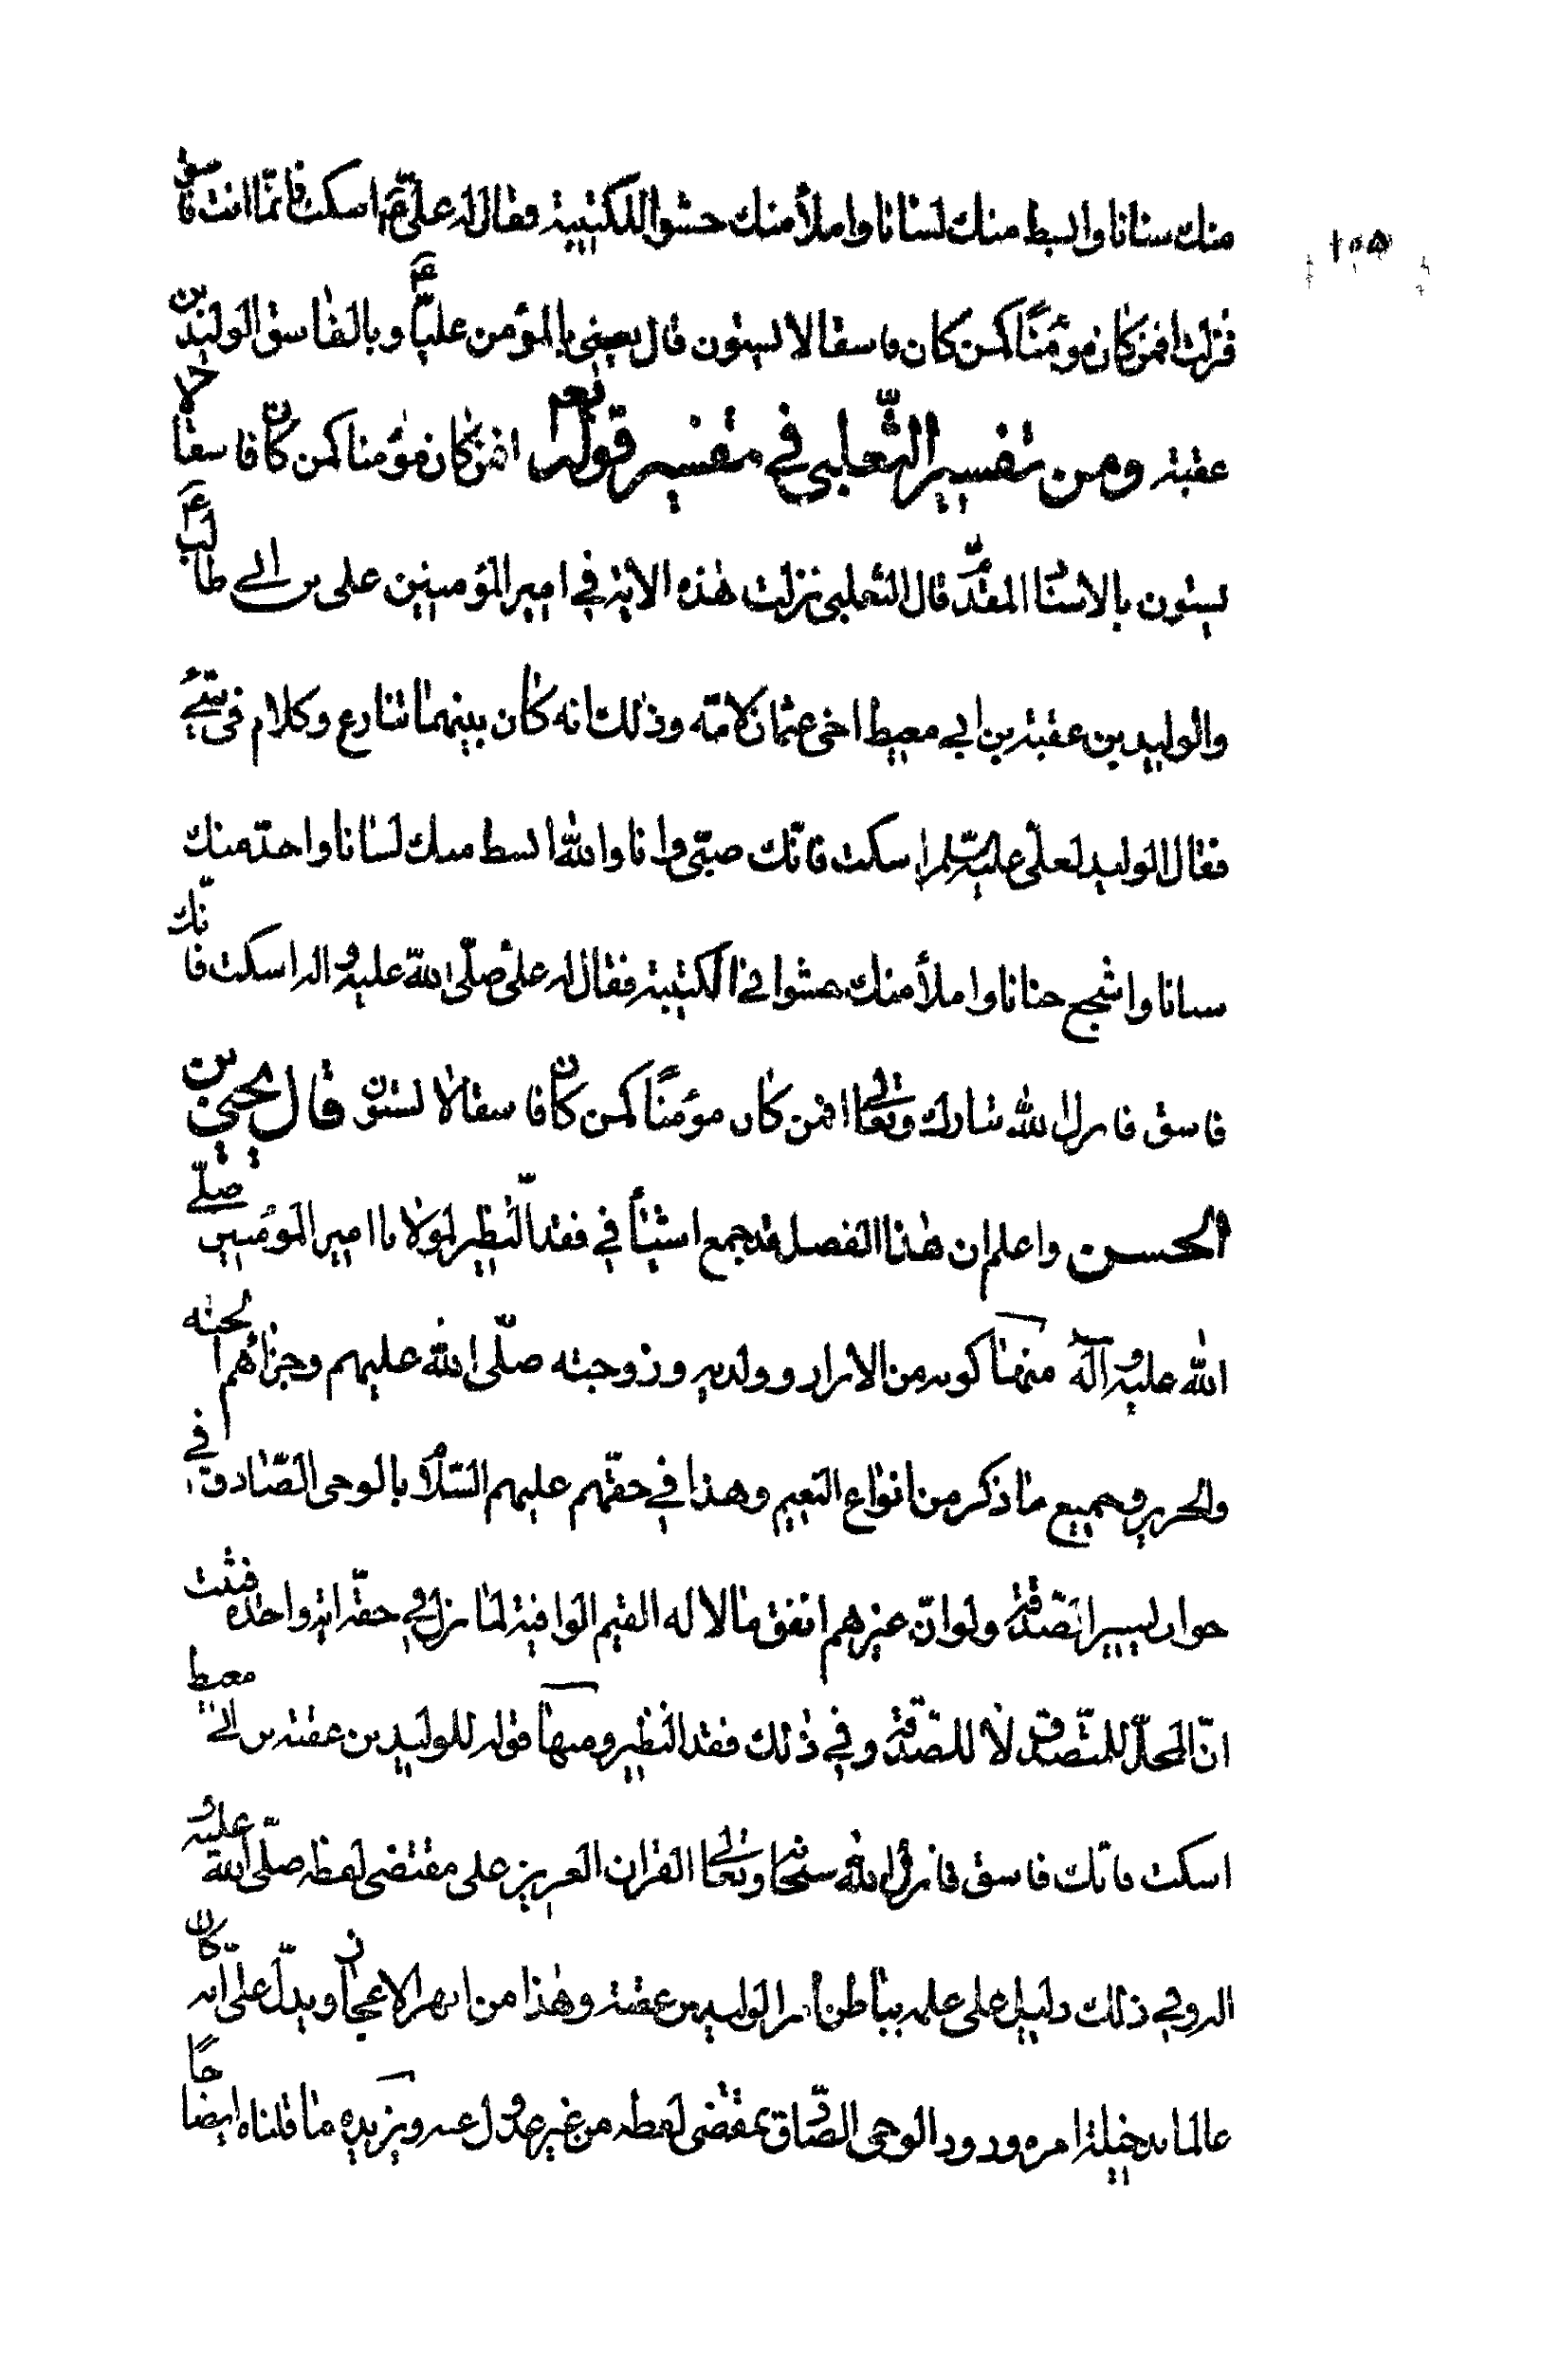 ١٠٥
منك سنانا وابسط منك لسانا واملأ منك حشوا للكتيبة فقال له علي ع م اسكت فانما انت فاسق
فنزلت افمن كان مؤمنًا كمن كان فاسقا لا يستون قال يعنى بالمؤمن عليّا ع وبالفاسق الوليد بن
عقبة ومن تفسير الثّعلبي في تفسير قوله تعر افمن كان مؤمنا كمن كان فاسقا لا
يستون بالاسناد المقدّم قال الثعلبي نزلت هذه الاية في امير المؤمنين على بن ابي طالب ع
والوليد بن عقبة بن ابي معيط اخى عثمان لامّه وذلك انه كان بينهما تنازع وكلام فى شيء
فقال الوليد لعلى عليه السّلم اسكت فانّك صبّى وانا والله ابسط منك لسانا واحدّ منك
سنانا واشجع جنانا واملأ منك حشوا في الكتيبة فقال له علي صلّى الله عليه واله اسكت فانّك
فاسق فانزل الله تبارك وتعالى افمن كان مؤمنًا كمن كان فاسقا لا يستون قال يحيى بن
الحسن واعلم ان هذا الفصل قد جمع اشياء في فقد النّظير لمولانا امير المؤمنين صلّى
الله عليه وآله منها كونه من الابرار وولديه وزوجته صلّى الله عليهم وجزائهم الجنه
والحرير وجميع ما ذكر من انواع النعيم وهذا في حقّهم عليهم السّلام بالوحى الصّادق في
جواب يسير الصّدقة ولو انّ غيرهم انفق مالا له القيم الوافية لما نزل في حقّه اية واحدة فثبت
انّ المحلّ للمتّصدّق لا للصّدقة وفي ذلك فقد النّظير ومنها قوله للوليد بن عقبة بن ابي معيط
اسكت فانّك فاسق فانزل الله سبحانه وتعالى القران العزيز على مقتضى لفظه صلّى الله عليه و
اله وفي ذلك دليل على علمه بباطن امر الوليد بن عقبة وهذا من ابهر الاعجاز ويدلّ على انّه كان
عالما بدخيلة امره ورود الوحى الصّادق بمقتضى لفظه من غير عدول عنه ويزيده ما قلناه ايضاحًا